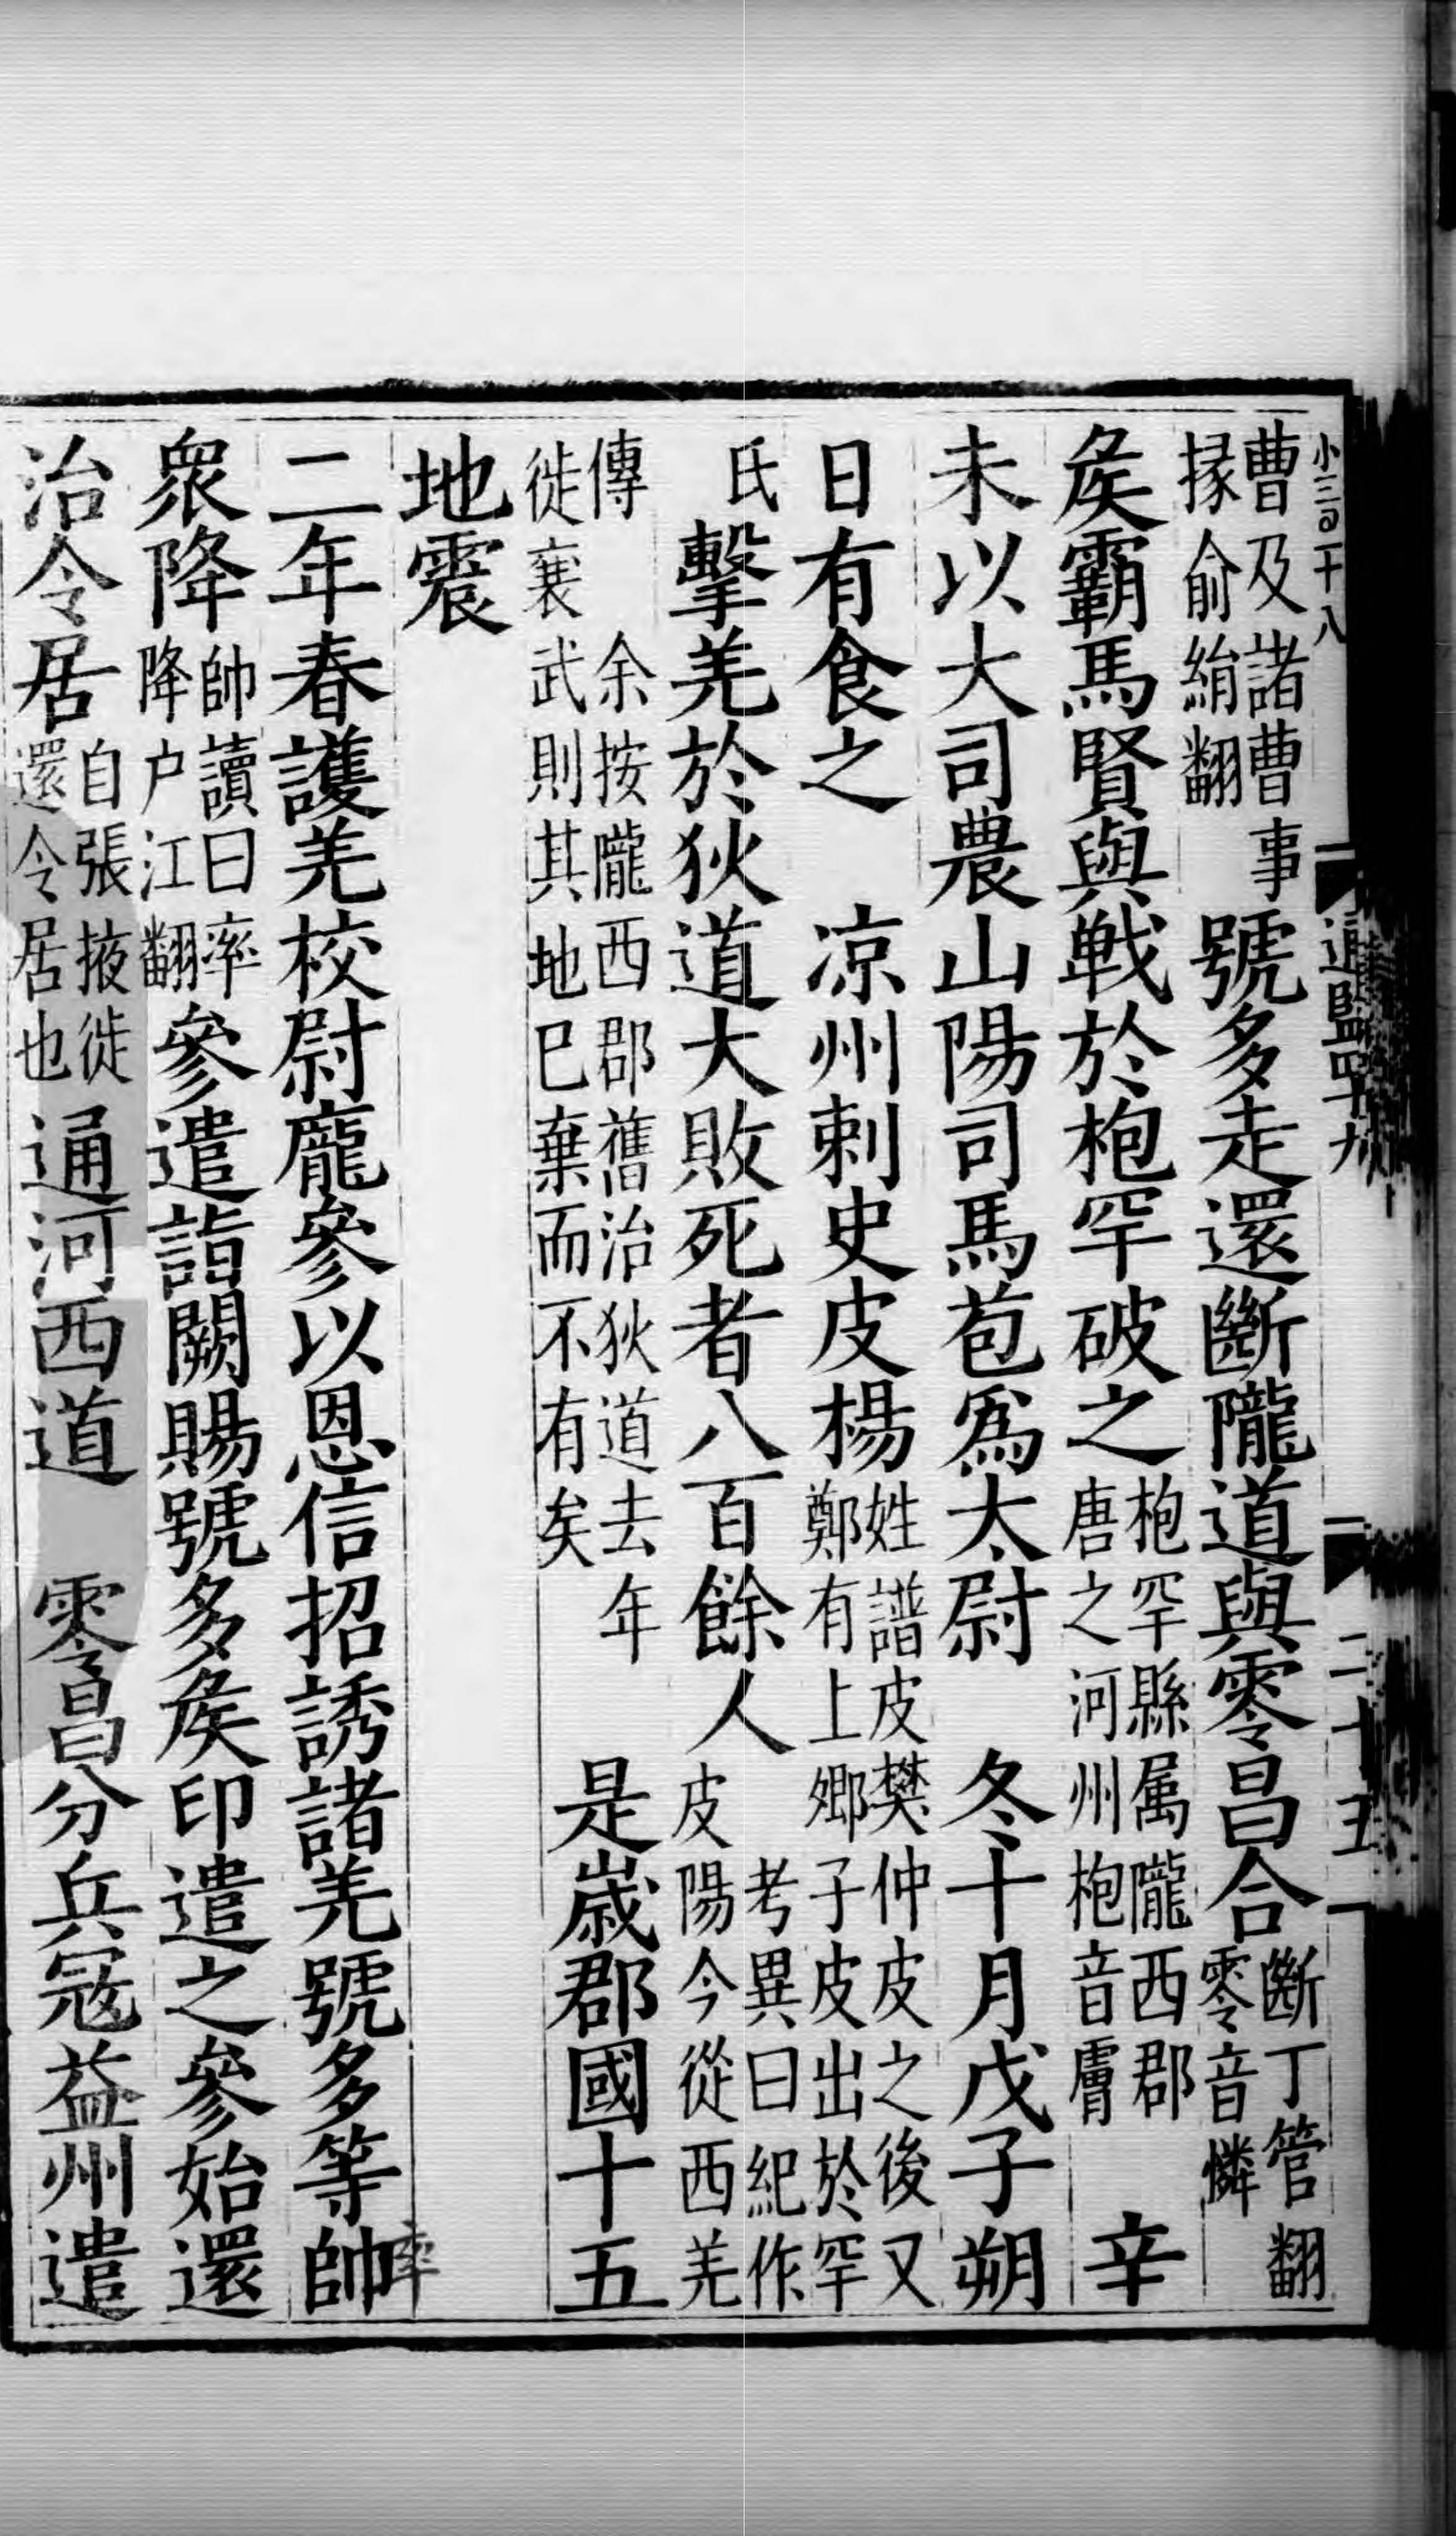 小三百十八
通鑑四十九
二十五
曹及諸曹事掾俞絹翻號多走還斷隴道與零昌合斷丁管翻零音憐
矦霸馬賢與戦於枹罕破之枹罕縣属隴西郡唐之河州枹音膚 辛
未以大司農山陽司馬苞爲太尉 冬十月戊子朔
日有食之 凉州刺史皮楊姓譜皮樊仲皮之後又鄭有上卿子皮出於罕
氏擊羌於狄道大敗死者八百餘人考異曰紀作皮陽今從西羌
傳 余按隴西郡舊治狄道去年徙襄武則其地巳棄而不有矣 是歲郡國十五
地震
二年春護羌校尉龐參以恩信招誘諸羌號多等帥
率
衆降帥讀曰率降户江翻參遣詣闕賜號多矦印遣之參始還
治令居自張掖徙還令居也通河西道 零昌分兵寇益州遣